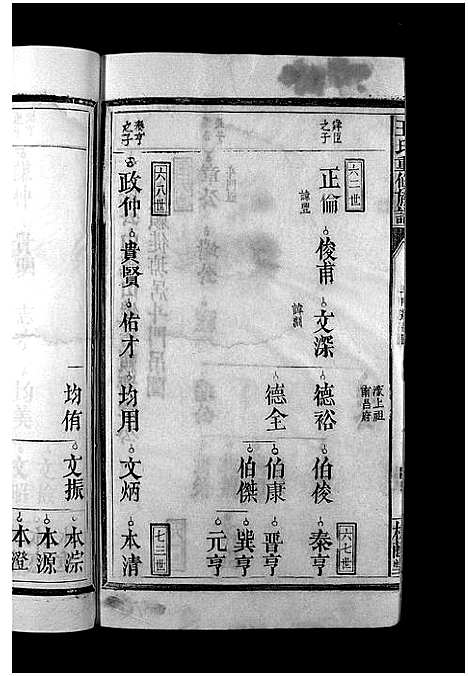 王氏重修族譜
諱臣之子
六二世
正倫
諱豐
俊甫
文深
諱淵
德裕
伯俊
秦亨
六七世
德全
伯康
伯傑
晋亨
巽亨
元亨
秦亨之子
六八世
政仲
貴賢
佑才
均用
文炳
本清
七三世
均侑
文振
本淙
本源
本澄